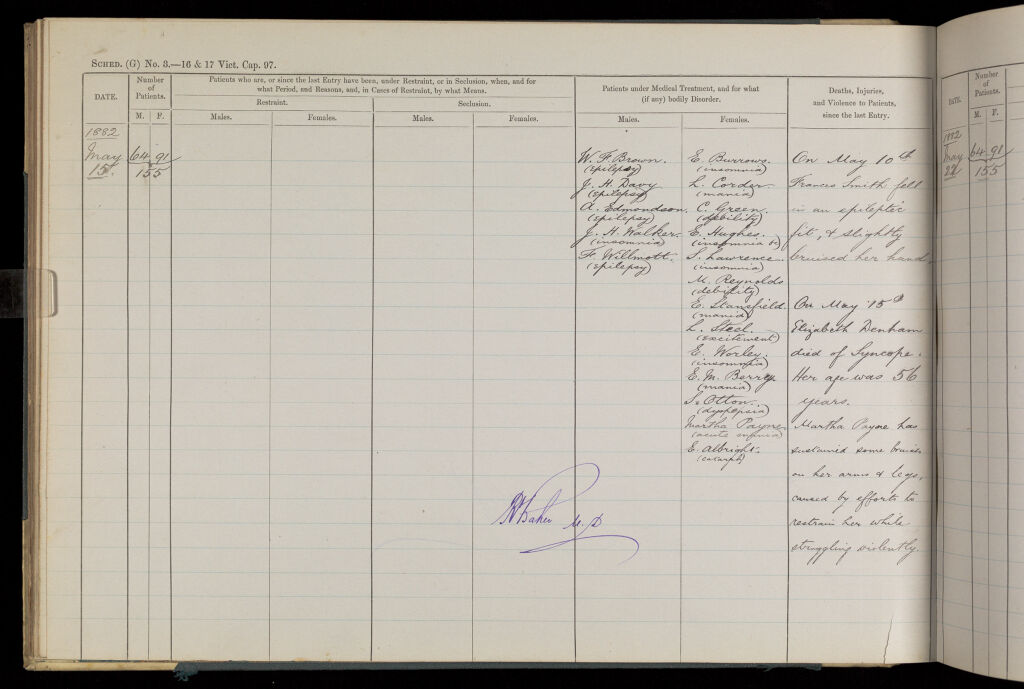 SCHED. (G) No. 3.—16 & 17 Vict. Cap. 97.
DATE.
Number of Patients.
M. F.
Patients who are, or since the last Entry have been, under Restraint, or in Seclusion, when, and for
what Period, and Reasons, and, in Cases of Restraint, by what Means.
Restraint.
Seclusion.
Males.
Females.
Males.
Females.
Patients under Medical Treatment, and for what
(if any) bodily Disorder.
Males.
Females.
Deaths, Injuries,
and Violence to Patients,
since the last Entry.
1882
May 64 91
15. 155
W. F. Brown.
(epilepsy)
J. H. Davy
(epilepsy)
A. Edmondson.
(epilepsy)
J. H. Walker.
(insomnia)
F. Willmott.
(epilepsy)
E. Burrows.
(insomnia)
L. Corder
(mania)
C. Green.
(debility)
E. Hughes.
(insomnia &c)
S. Lawrence.
(insomnia)
M. Reynolds
(debility)
E. Stansfield.
(mania)
L. Steel.
(excitement)
E. Worley.
(insomnia)
E. M. Berry
(mania)
S. Otton.
(dyspepsia)
Martha Payne.
(acute mania)
E. Albright.
(catarrh)
On May 10th
Frances Smith fell
in an epileptic
fit, & slightly
bruised her hand.
On May 15th
Elizabeth Denham
died of Syncope.
Her age was 56
years.
Martha Payne has
sustained some bruises
on her arms & legs,
caused by efforts to
restrain her while
struggling violently.
Baker M.D
DATE.
Number of Patients.
M. F.
1882
May 64 91
22 155